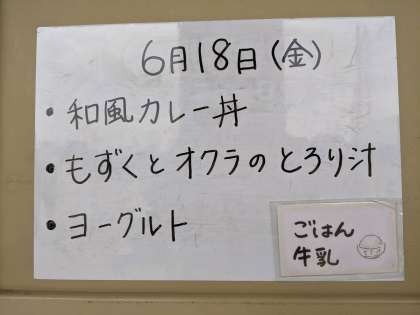 6月18日(金)
・和風カレー丼
・もずくとオクラのとろり汁
・ヨーグルト
ごはん
牛乳